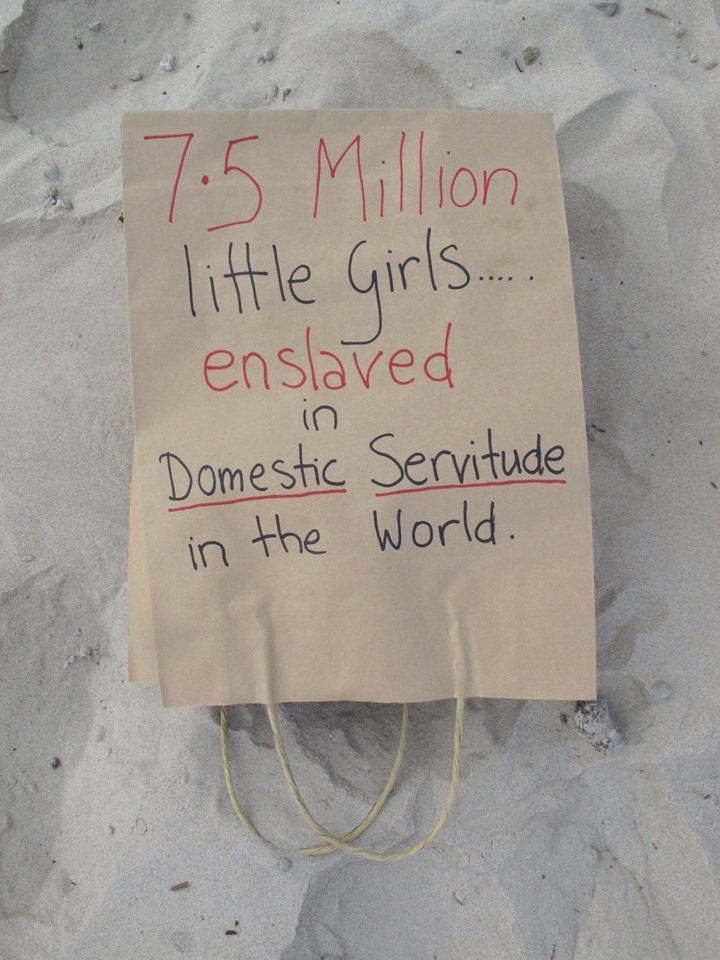 7.5 Million
little Girls.....
enslaved
in
Domestic Servitude
in the World.